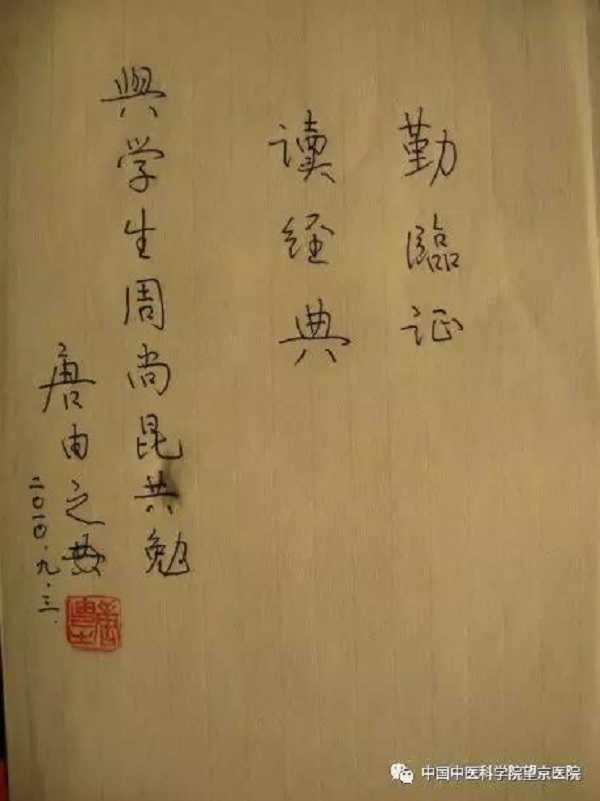 勤臨证
讀经典
與学生周尚昆共勉
唐由之
二〇一〇.九.三.
唐由之
中国中医科学院望京医院